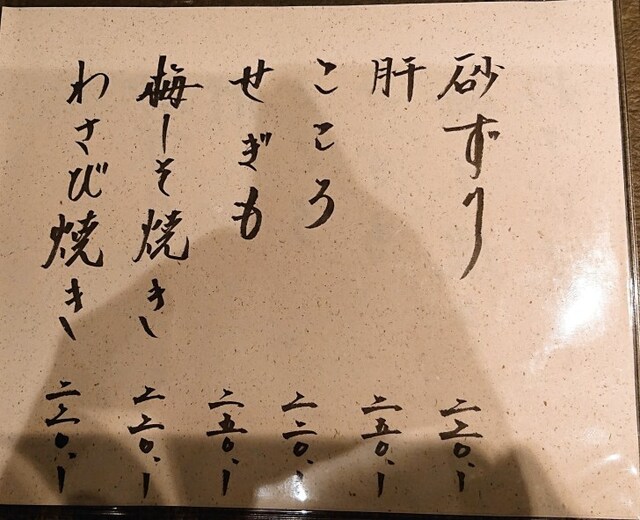 砂ずり 二二〇.ー
肝 二五〇.ー
こころ 二二〇.ー
せぎも 二五〇.ー
梅しそ焼き 二二〇.ー
わさび焼き 二二〇.ー